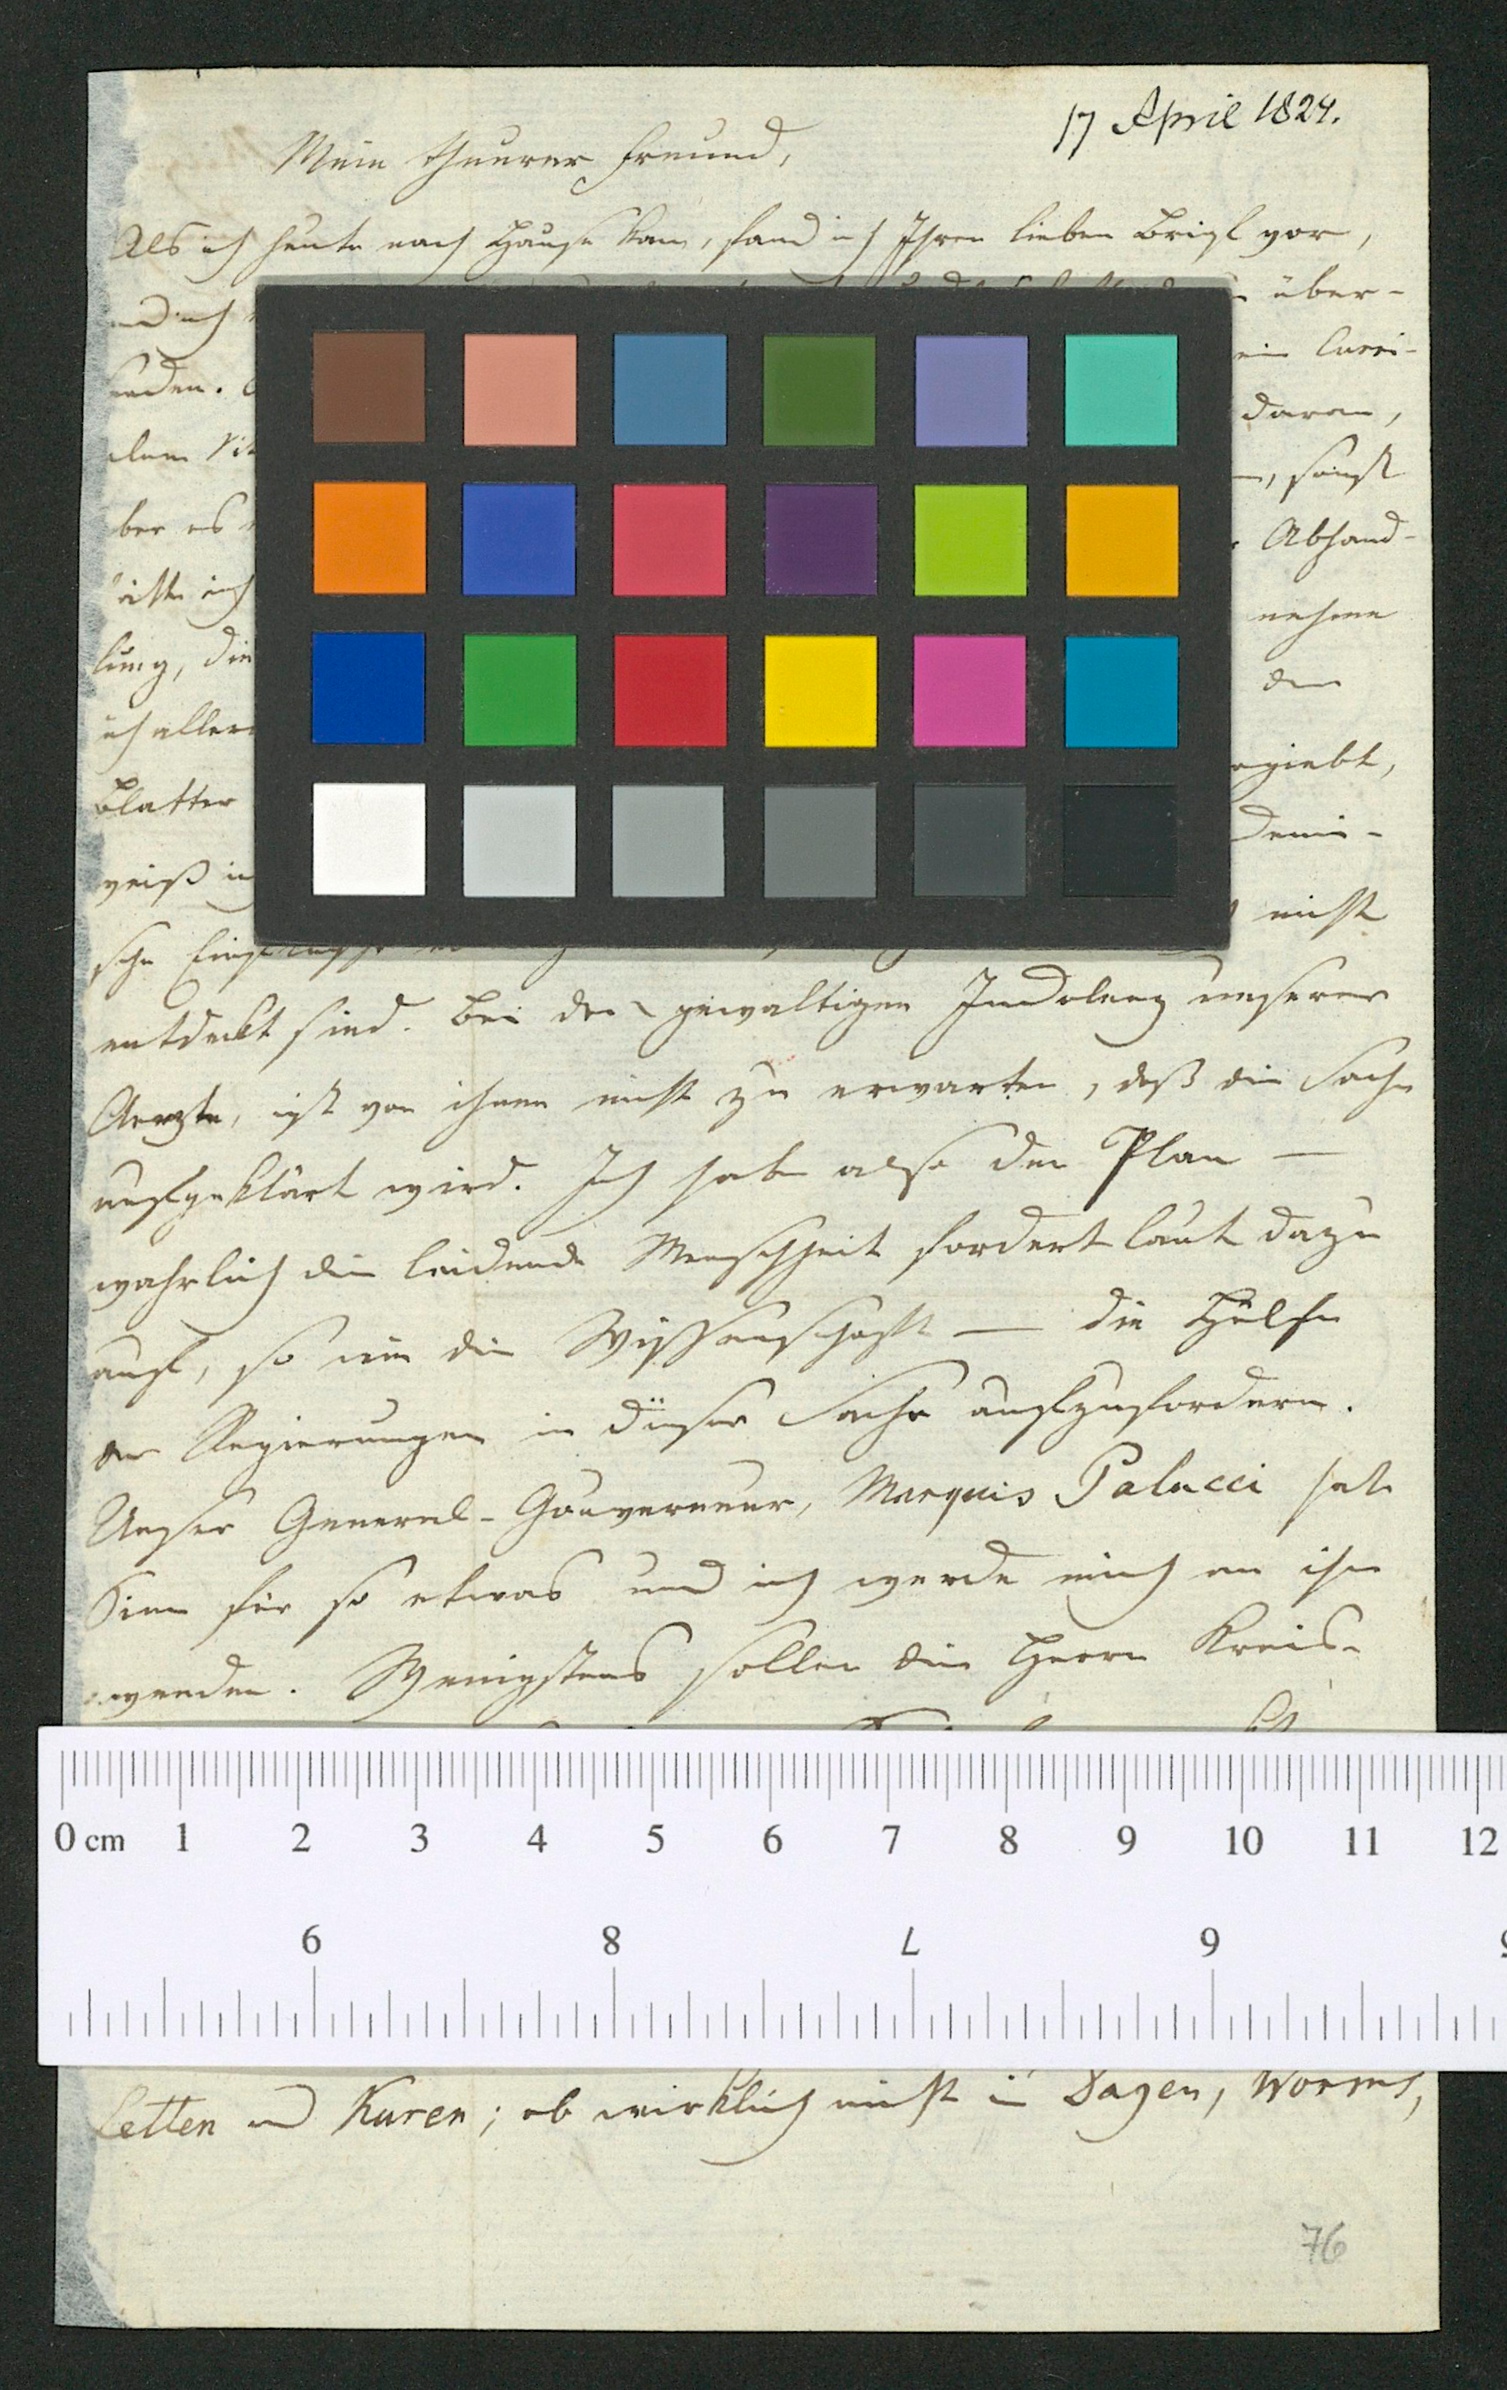 17 April 1824.
Mein theurer Freund,
Als ich heute nach Hause kam, fand ich Ihren lieben Brief vor,
und ich über-
senden. ein Curri-
dum daran,
ber es sonst
ich Abhand-
lung, die nehme
ich den
Blatter ergiebt,
weiß demi-
sche nicht
entdeckt sind. Bei der gewaltigen Indolenz unserer
Aerzte, ist von ihnen nicht zu erwarten, daß die Sache
aufgeklärt wird. Ich habe also den Plan —
wahrlich die leidende Menschheit fordert laut dazu
auf, so wie die Wissenschaft — die Hülfe
der Regierungen in dieser Sache aufzufordern.
Unser General-Gouverneur, Marquis Palucci hat
Sinn für so etwas und ich werde mich an ihn
wenden. Wenigstens sollen die Herrn Kreis-
0 cm 1 2 3 4 5 6 7 8 9 10 11 12
9 8 7 6 5
Letten und Kuren; ob wirklich nicht in Dagen, Worms,
76